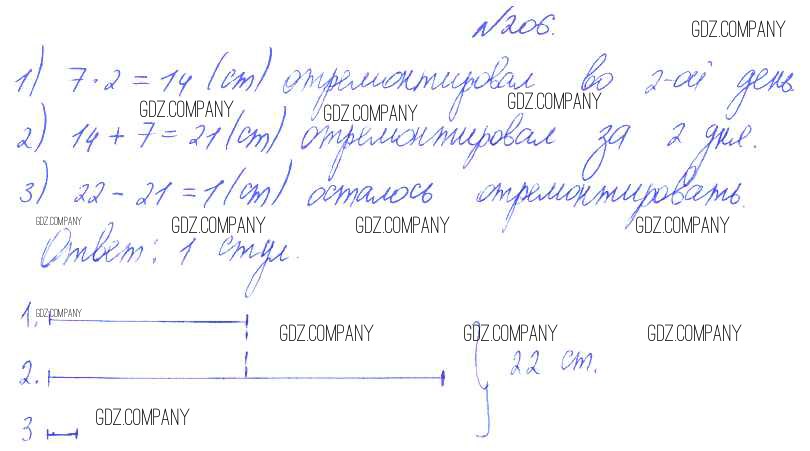 №206. GDZ.COMPANY
1) 7·2=14 (ст) отремонтировал во 2-ой день
GDZ.COMPANY GDZ.COMPANY GDZ.COMPANY
2) 14+7=21 (ст) отремонтировал за 2 дня.
3) 22-21=1 (ст) осталось отремонтировать.
GDZ.COMPANY GDZ.COMPANY GDZ.COMPANY GDZ.COMPANY
Ответ: 1 стул.
1. GDZ.COMPANY
GDZ.COMPANY GDZ.COMPANY GDZ.COMPANY
2. 22 ст.
3 GDZ.COMPANY